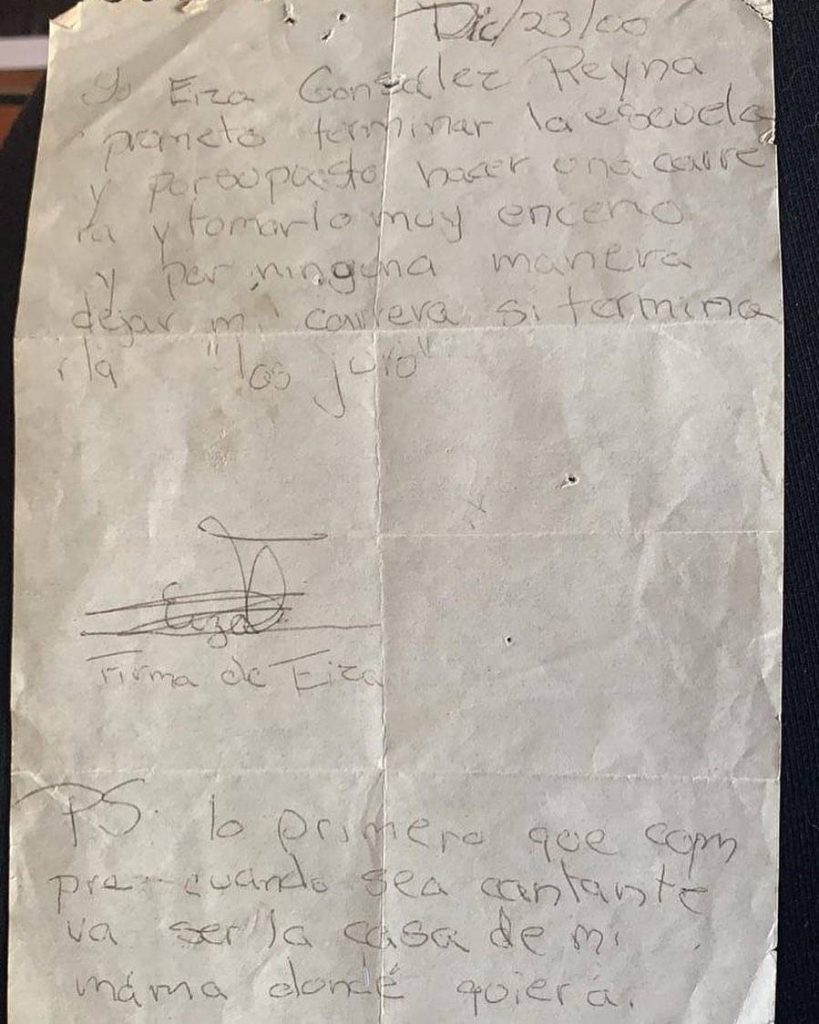 Dic/23/00
Yo Eiza González Reyna
prometo terminar la escuela
y porsupuesto hacer una carre
ra y tomarlo muy enceno
y per ninguna manera
dejar mi carrera si termina
rla "los juro"
Eiza
Firma de Eiza
PS. lo primero que com
pre cuando sea cantante
va ser la casa de mi
máma dondé quierá.